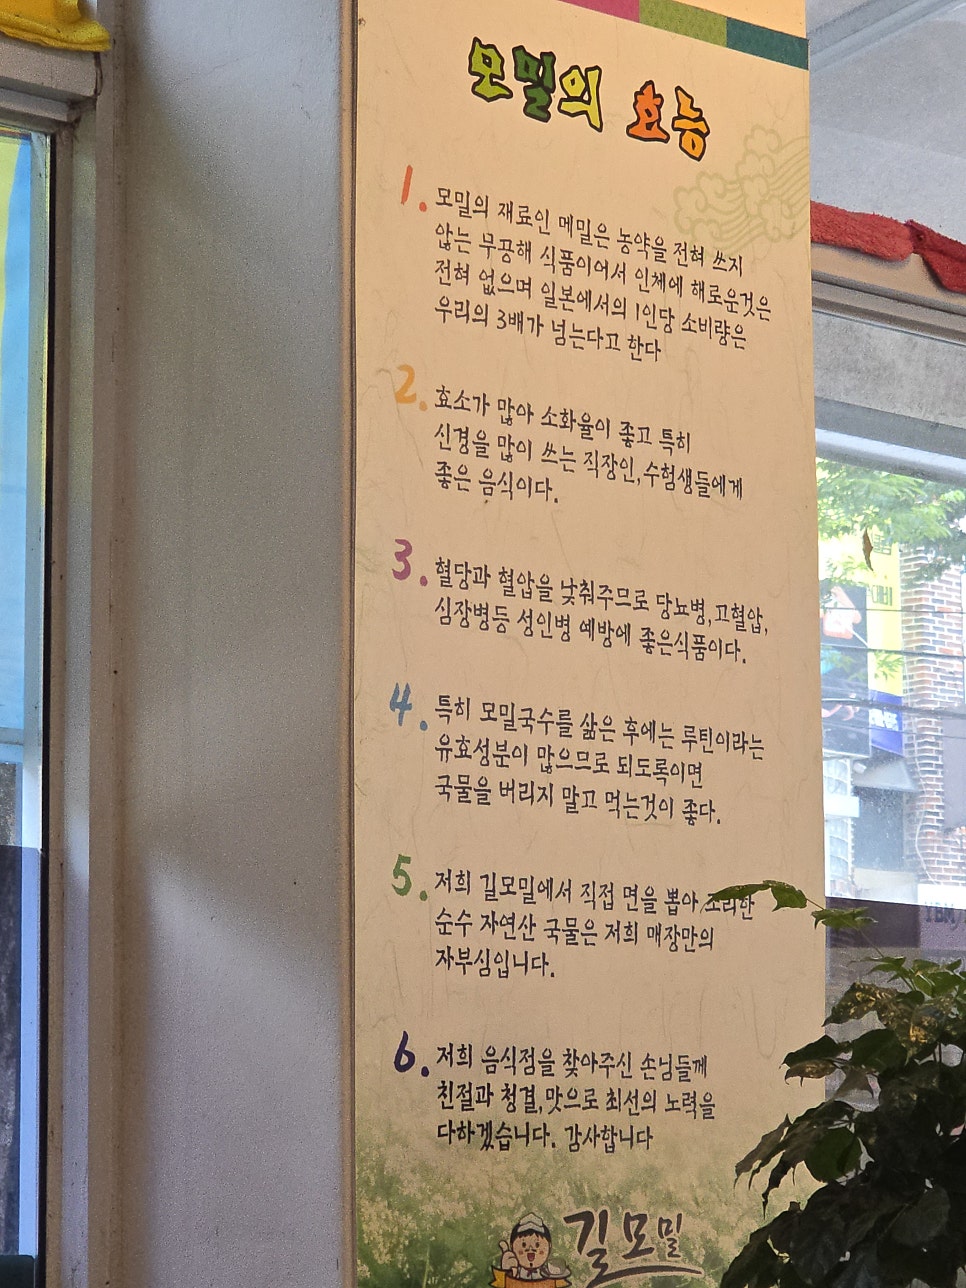 모밀의 효능
1. 모밀의 재료인 메밀은 농약을 전혀 쓰지
않는 무공해 식품이어서 인체에 해로운것은
전혀 없으며 일본에서의 1인당 소비량은
우리의 3배가 넘는다고 한다
2. 효소가 많아 소화율이 좋고 특히
신경을 많이 쓰는 직장인, 수험생들에게
좋은 음식이다.
3. 혈당과 혈압을 낮춰주므로 당뇨병, 고혈압,
심장병등 성인병 예방에 좋은식품이다.
4. 특히 모밀국수를 삶은 후에는 루틴이라는
유효성분이 많으므로 되도록이면
국물을 버리지 말고 먹는것이 좋다.
5. 저희 길모밀에서 직접 면을 뽑아 조리한
순수 자연산 국물은 저희 매장만의
자부심입니다.
6. 저희 음식점을 찾아주신 손님들께
친절과 청결, 맛으로 최선의 노력을
다하겠습니다. 감사합니다
길모밀
YBM